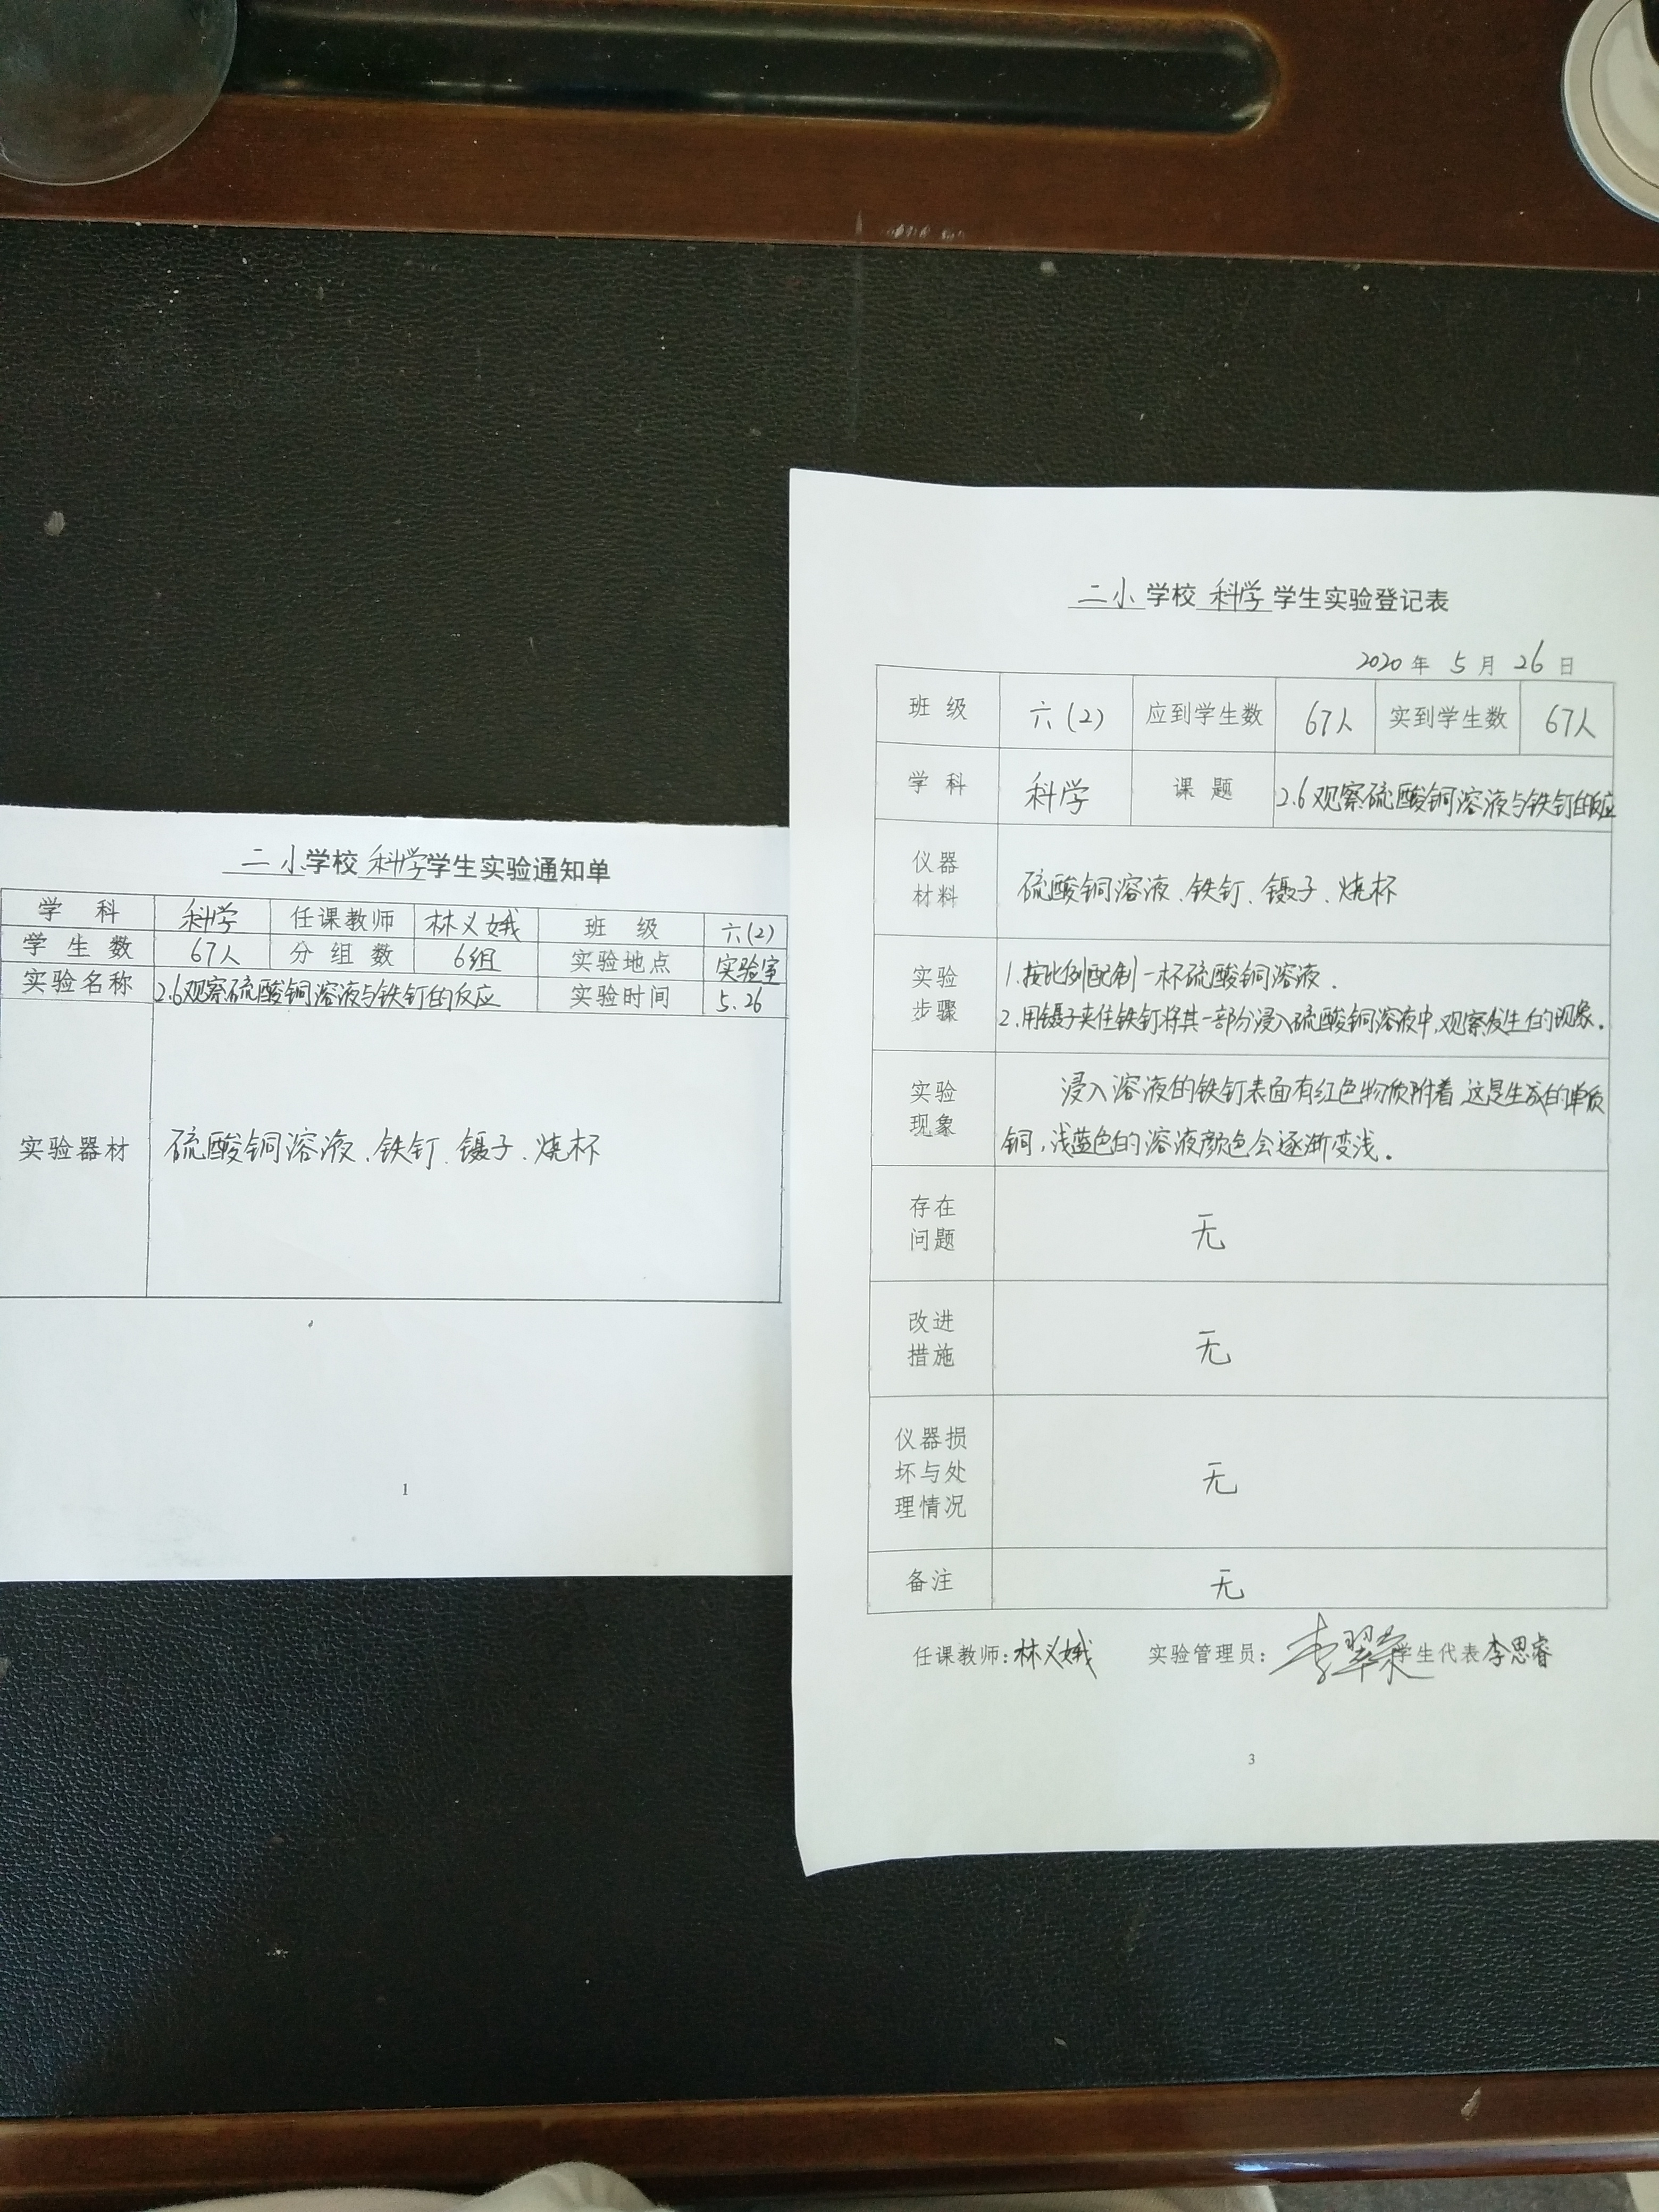 二小学校科学学生实验通知单
学科 科学 任课教师 林义娥 班级 六(2)
学生数 67人 分组数 6组 实验地点 实验室
实验名称 2.6观察硫酸铜溶液与铁钉的反应 实验时间 5.26
实验器材 硫酸铜溶液、铁钉、镊子、烧杯
1
二小学校科学学生实验登记表
2020年5月26日
班级 六(2) 应到学生数 67人 实到学生数 67人
学科 科学 课题 2.6观察硫酸铜溶液与铁钉的反应
仪器
材料
硫酸铜溶液、铁钉、镊子、烧杯
实验
步骤
1.按比例配制一杯硫酸铜溶液.
2.用镊子夹住铁钉将其一部分浸入硫酸铜溶液中,观察发生的现象.
实验
现象
浸入溶液的铁钉表面有红色物质附着,这是生成的单质
铜,浅蓝色的溶液颜色会逐渐变浅.
存在
问题
无
改进
措施
无
仪器损
坏与处
理情况
无
备注 无
任课教师:林义娥 实验管理员:李翠荣 学生代表 李思睿
3